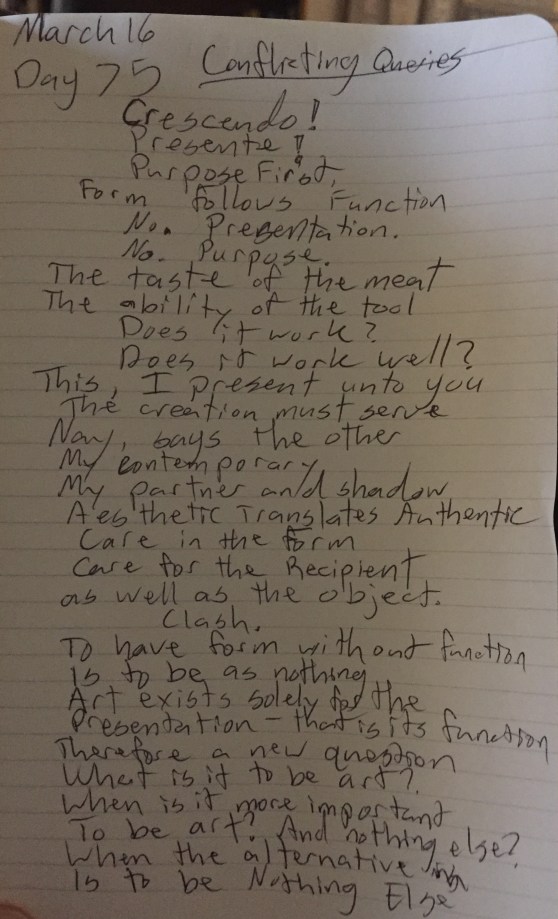 March 16
Day 75 Conflicting Queries
Crescendo!
Presente!
Purpose First,
Form follows Function
No. Presentation.
No. Purpose.
The taste of the meat
The ability of the tool
Does it work?
Does it work well?
This, I present unto you
The creation must serve
Nay, says the other
My contemporary
My partner and shadow
Aesthetic Translates Authentic
Care in the form
Care for the Recipient
as well as the object.
Clash.
To have form without function
Is to be as nothing
Art exists solely for the
Presentation - that is its function
Therefore a new question
What is it to be art?
When is it more important
To be art? And nothing else?
When the alternative
Is to be Nothing Else